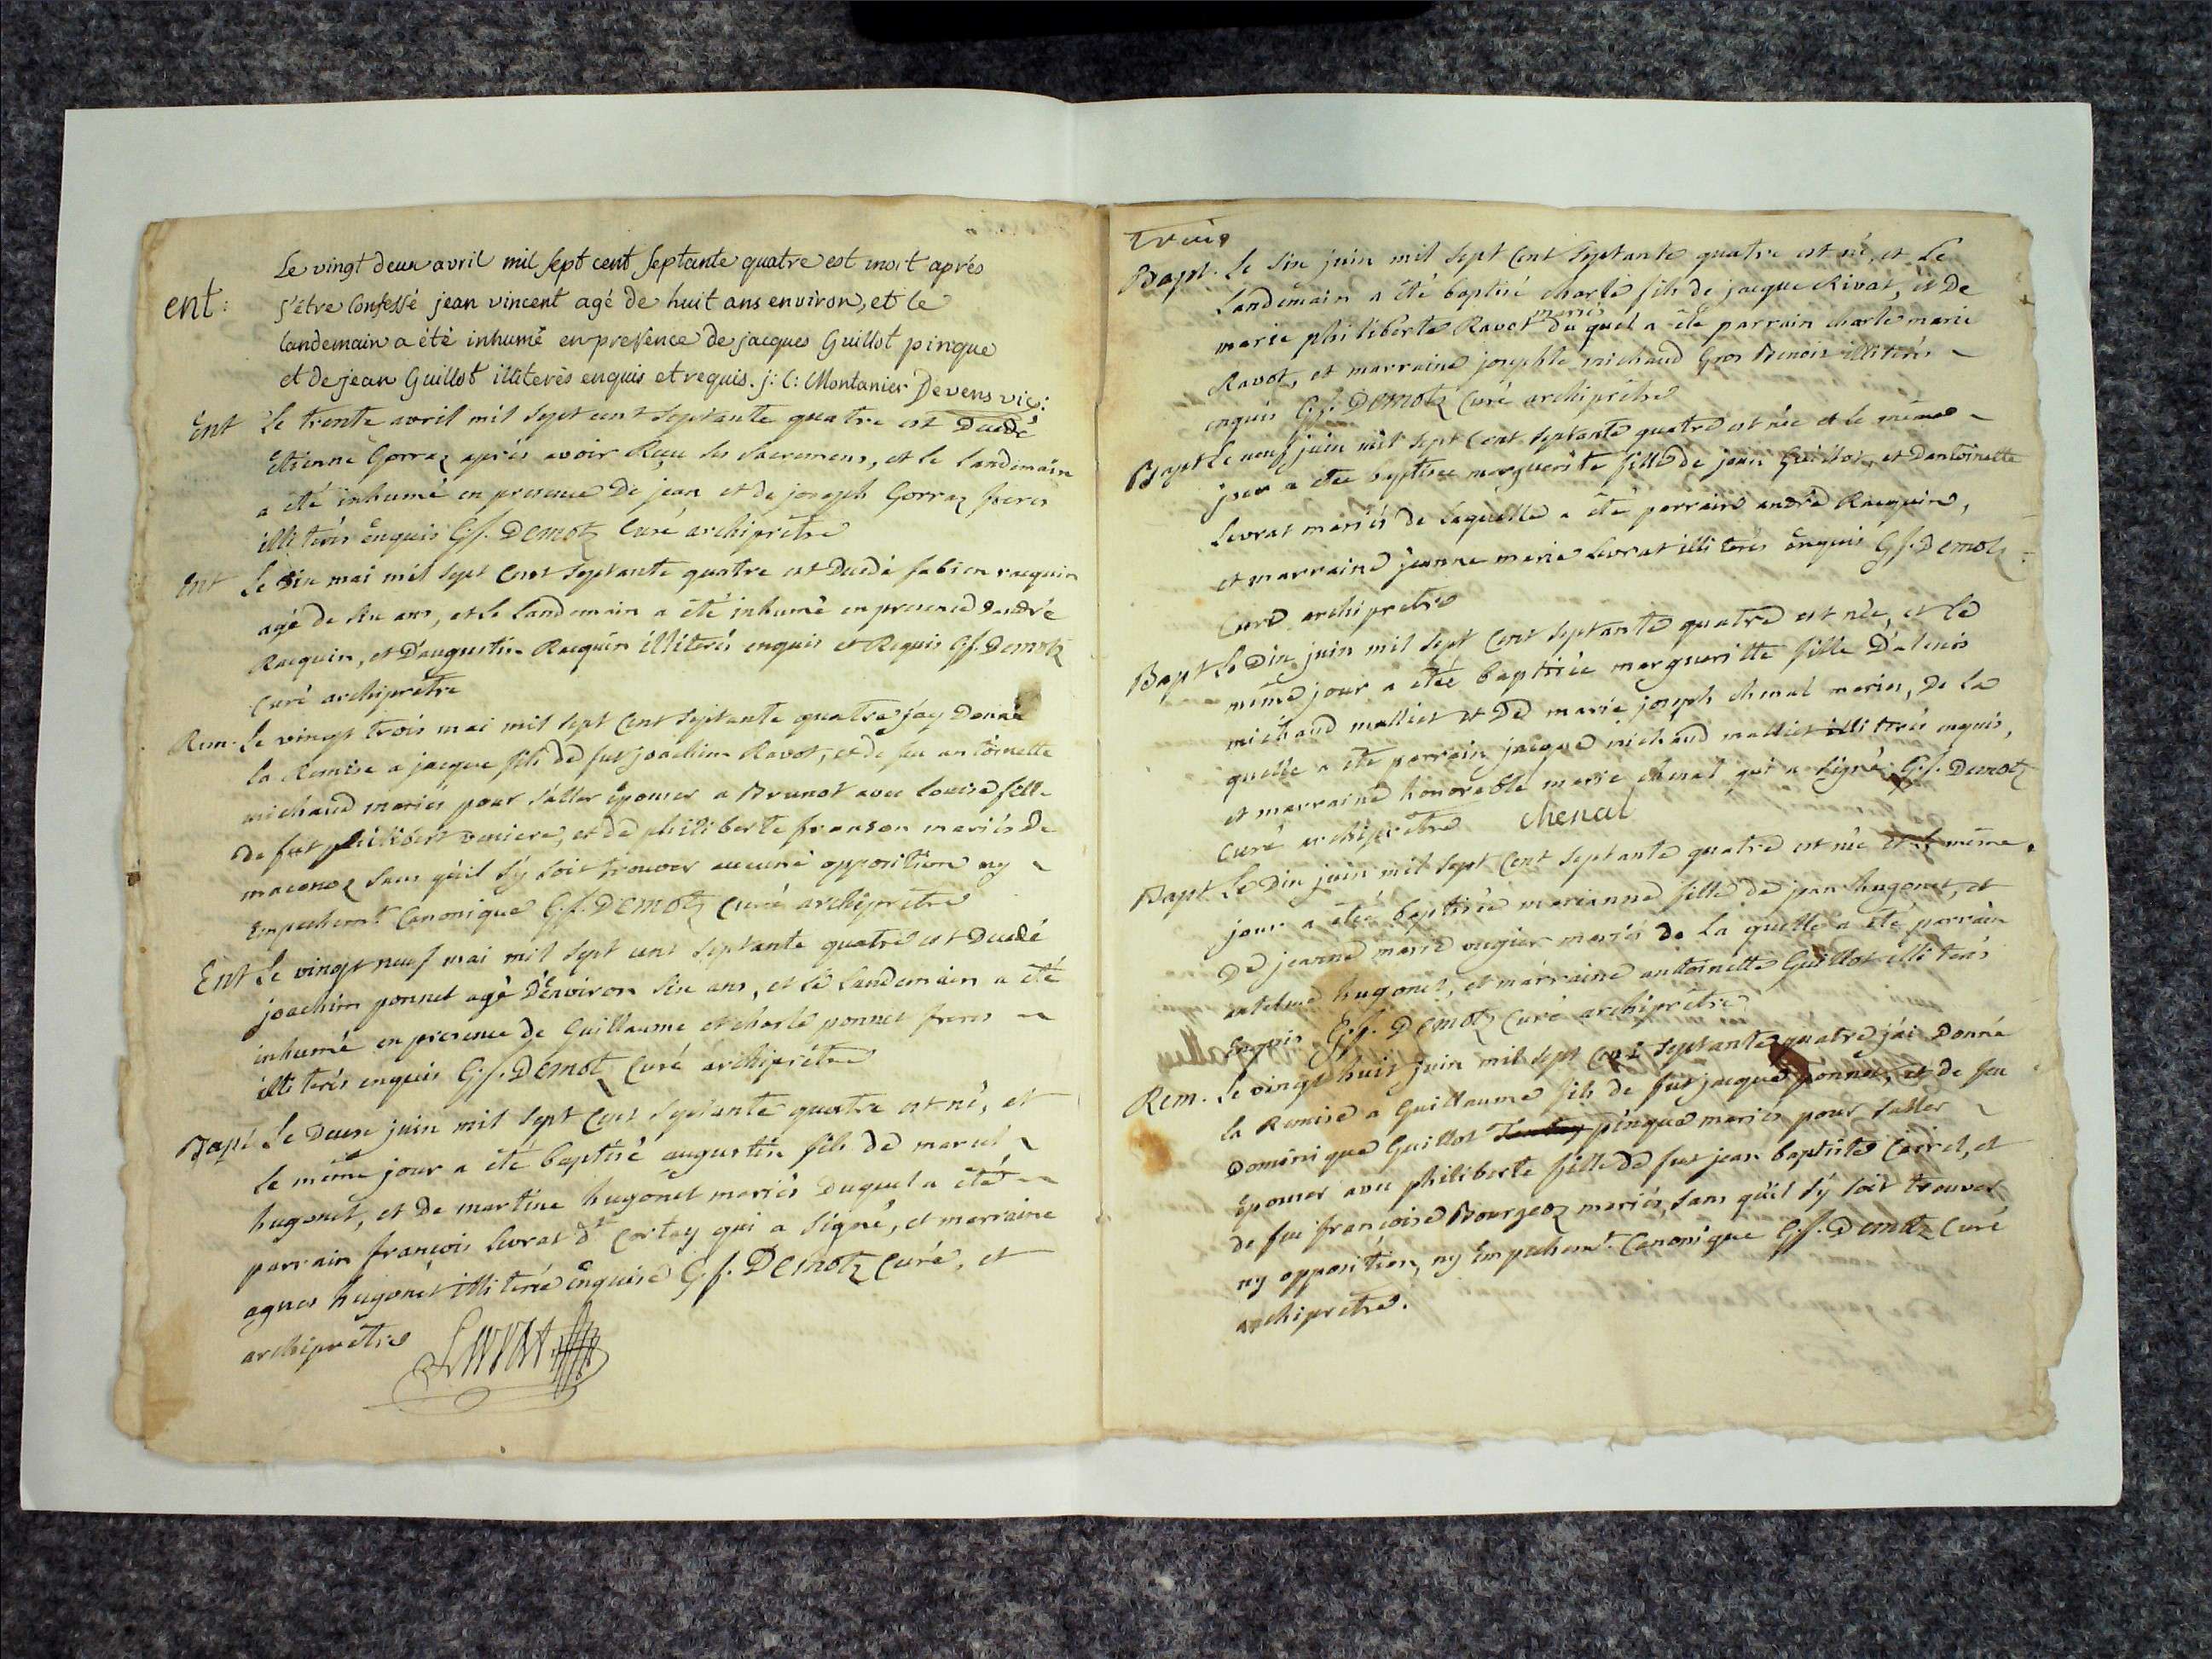 Le vingt deux avril mil sept cent septante quatre est mort après
ent: s'être Confessé jean vincent agé de huit ans environ, et le
landemain a été inhumé en presence de jacques Guillot pinque
et de jean Guillot illiterés enquis et requis. j: C: Montanier Devens vic:
Ent Le trente avril mil sept cent septante quatre est Decedé
Etienne Gorraz après avoir Reçu les sacremens, et le landemain
a été inhumé en presence De jean et de joseph Gorraz freres
illiterés Enquis G.f. Demotz Curé archiprêtre
Ent Le six mai mil sept Cent septante quatre est Decedé fabien racquin
agé de six ans, et Le landemain a été inhumé en presence d'andré
Racquin, et D'augustin Racquin illiterés enquis et Requis G.f. Demotz
Curé archiprêtre
Rem. Le vingt trois mai mil sept Cent septante quatre j'ay Donné
la Remise a jacque fils de fut joachim Ravot, et de feu antoinette
michaud mariés pour s'aller épouser a Brunot avec louise fille
de fut philibert veniere, et de philiberte franson mariés De
maconoz sans qu'il s'y soit trouver aucune opposition ny
Empechemt. Canonique G.f. Demotz Curé archiprêtre
Ent Le vingt neuf mai mil sept cent septante quatre est Decedé
joachim ponnet agé D'environ six ans, et le landemain a été
inhumé en presence de Guillaume et charle ponnet freres
illiterés enquis G.f. Demotz Curé archiprêtre
Bapt Le Deux juin mil sept Cent septante quatre est né, et
le même jour a été baptisé augustin fils de marcel
hugonet, et De martine hugonet mariés Duquel a été
parrain françois Levrat dt Cortey qui a signé, et marraine
agnes hugonet illiterée Enquise G.f. Demotz Curé, et
archiprêtre Levrat
Trois
Bapt. Le six juin mil sept Cent septante quatre est né, et Le
Landemain a été baptisé charle fils de jacque Rivat, et De
mariés
marie philiberte Ravot duquel a été parrain charle marie
Ravot, et marraine josephte michaud Gros Benoit illiterés
enquis G.f. Demotz Curé archiprêtre
Bapt Le neuf juin mil sept Cent septante quatre est née et le même
jour a étée baptisée marguerite fille de jean Guillot, et D'antoinette
Levrat mariés de laquelle a été parrain andré Racquin,
et marraine jeanne marie Levrat illiterés Enquis G.f. Demotz
Curé archiprêtre
Bapt Le Dix juin mil sept Cent septante quatre est née, et le
même jour a étée baptisée margueritte fille D'alexis
michaud malliet et De marie joseph chenal mariés, De la
quelle a été parrain jacque michaud malliet illiterés enquis,
et marraine honorable marie chenal qui a signé G.f. Demotz
Curé archiprêtre Chenal
Bapt. Le Dix juin mil sept Cent septante quatre est née et le même
jour a étée baptisée marianne fille de jean hugonet, et
De jeanne marie vugier mariés de La quelle a été parrain
antelme hugonet, et marraine antoinette Guillot illiterés
Enquis G.f. Demotz Curé archiprêtre
Rem. Le vingt huit juin mil sept Cent septante quatre j'ai Donné
la Remise a Guillaume fils de fut jacque ponnet, et de feu
Dominique Guillot pinque mariés pour s'aller
épouser avec philiberte fille de fut jean baptiste Cairel, et
de feu françoise Bourgeoz mariés, sans qu'il s'y soit trouver
ny opposition, ny Empechemt. Canonique G.f. Demotz Curé
archiprêtre.